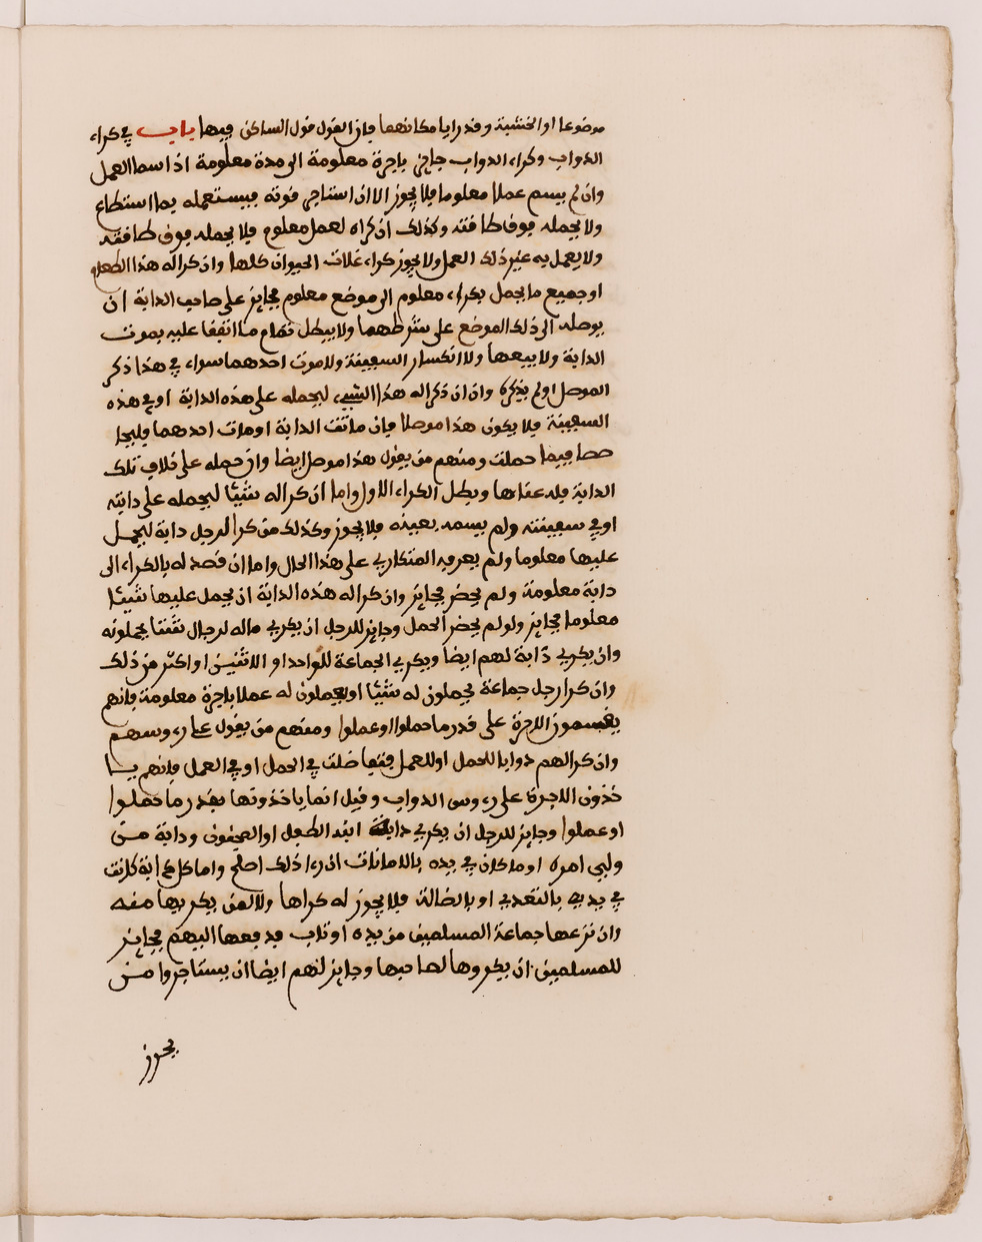 موضوعا او الخشبة وقد رايا مكانهما فان القول قول الساكن فيها باب في كراء
الدواب وكراء الدواب جايز باجرة معلومة الى مدة معلومة اذا سما العمل
وان لم يسم عملا معلوما فلا يجوز الا ان استاجر قوته فيستعمله بما استطاع
ولا يحمله فوق طاقته وكذلك ان كراه لعمل معلوم فلا يحمله فوق طاقته
ولا يعمل به غير ذلك العمل ولا يجوز كراء غلات الحيوان كلها وان كرا له هذا الطعام
او جميع ما يحمل بكراء معلوم الى موضع معلوم فجايز على صاحب الدابة ان
يوصله الى ذلك الموضع على شرطهما ولا يبطل تمام ما اتفقا عليه بموت
الدابة ولا بيعها ولا انكسار السفينة ولا موت احدهما سواء في هذا ذكر
الموصل او لم يذكره وان ان ذكر اله هذا الشيء ليحمله على هذه الدابة او في هذه
السفينة فلا يكون هذا موصلا فان ماتت الدابة او مات احدهما فليحا
صصا فيما حملت ومنهم من يقول هذا موصل ايضا وان حمله على خلاف تلك
الدابة فله عناها وبطل الكراء الاول واما ان كرا له شيئا ليحمله على دابته
او في سفينته ولم يسمه بعينه فلا يجوز وكذلك من كرا لرجل دابة ليحمل
عليها معلوما ولم يعرف المتكاري على هذا الحال واما ان قصد له بالكراء الى
دابة معلومة ولم تحضر فجايز وان كرا له هذه الدابة ان يحمل عليها شيئا
معلوما فجايز ولو لم يحضر الحمل وجايز للرجل ان يكري ماله لرجال شتتا يحملونه
وان يكري دابة لهم ايضا ويكري الجماعة للواحد او الاثنين او اكثر من ذلك
وان كرا رجل جماعة يحملون له شيئا او يعملون له عملا باجرة معلومة فانهم
يقسمون الاجرة على قدر ما حملوا او عملوا ومنهم من يقول على رءوسهم
وان كرا لهم دوابا للحمل او للعمل فتفاضلت في الحمل او في العمل فانهم يا
خذون الاجرة على رءوس الدواب وقيل انما ياخذونها بقدر ما حملوا
او عملوا وجايز للرجل ان يكري دابة ابنه الطفل او المجنون ودابة من
ولي امره او ما كان في يده بالامانات ان رءا ذلك اصلح واما كل دابة كانت
في يديه بالتعدي او بالضالة فلا يجوز له كراها ولا لمن يكريها منه
وان نزعها جماعة المسلمين من يده او تاب فدفعها اليهم فجايز
للمسلمين ان يكروها لصاحبها وجايز لهم ايضا ان يستاجروا من
يحرز